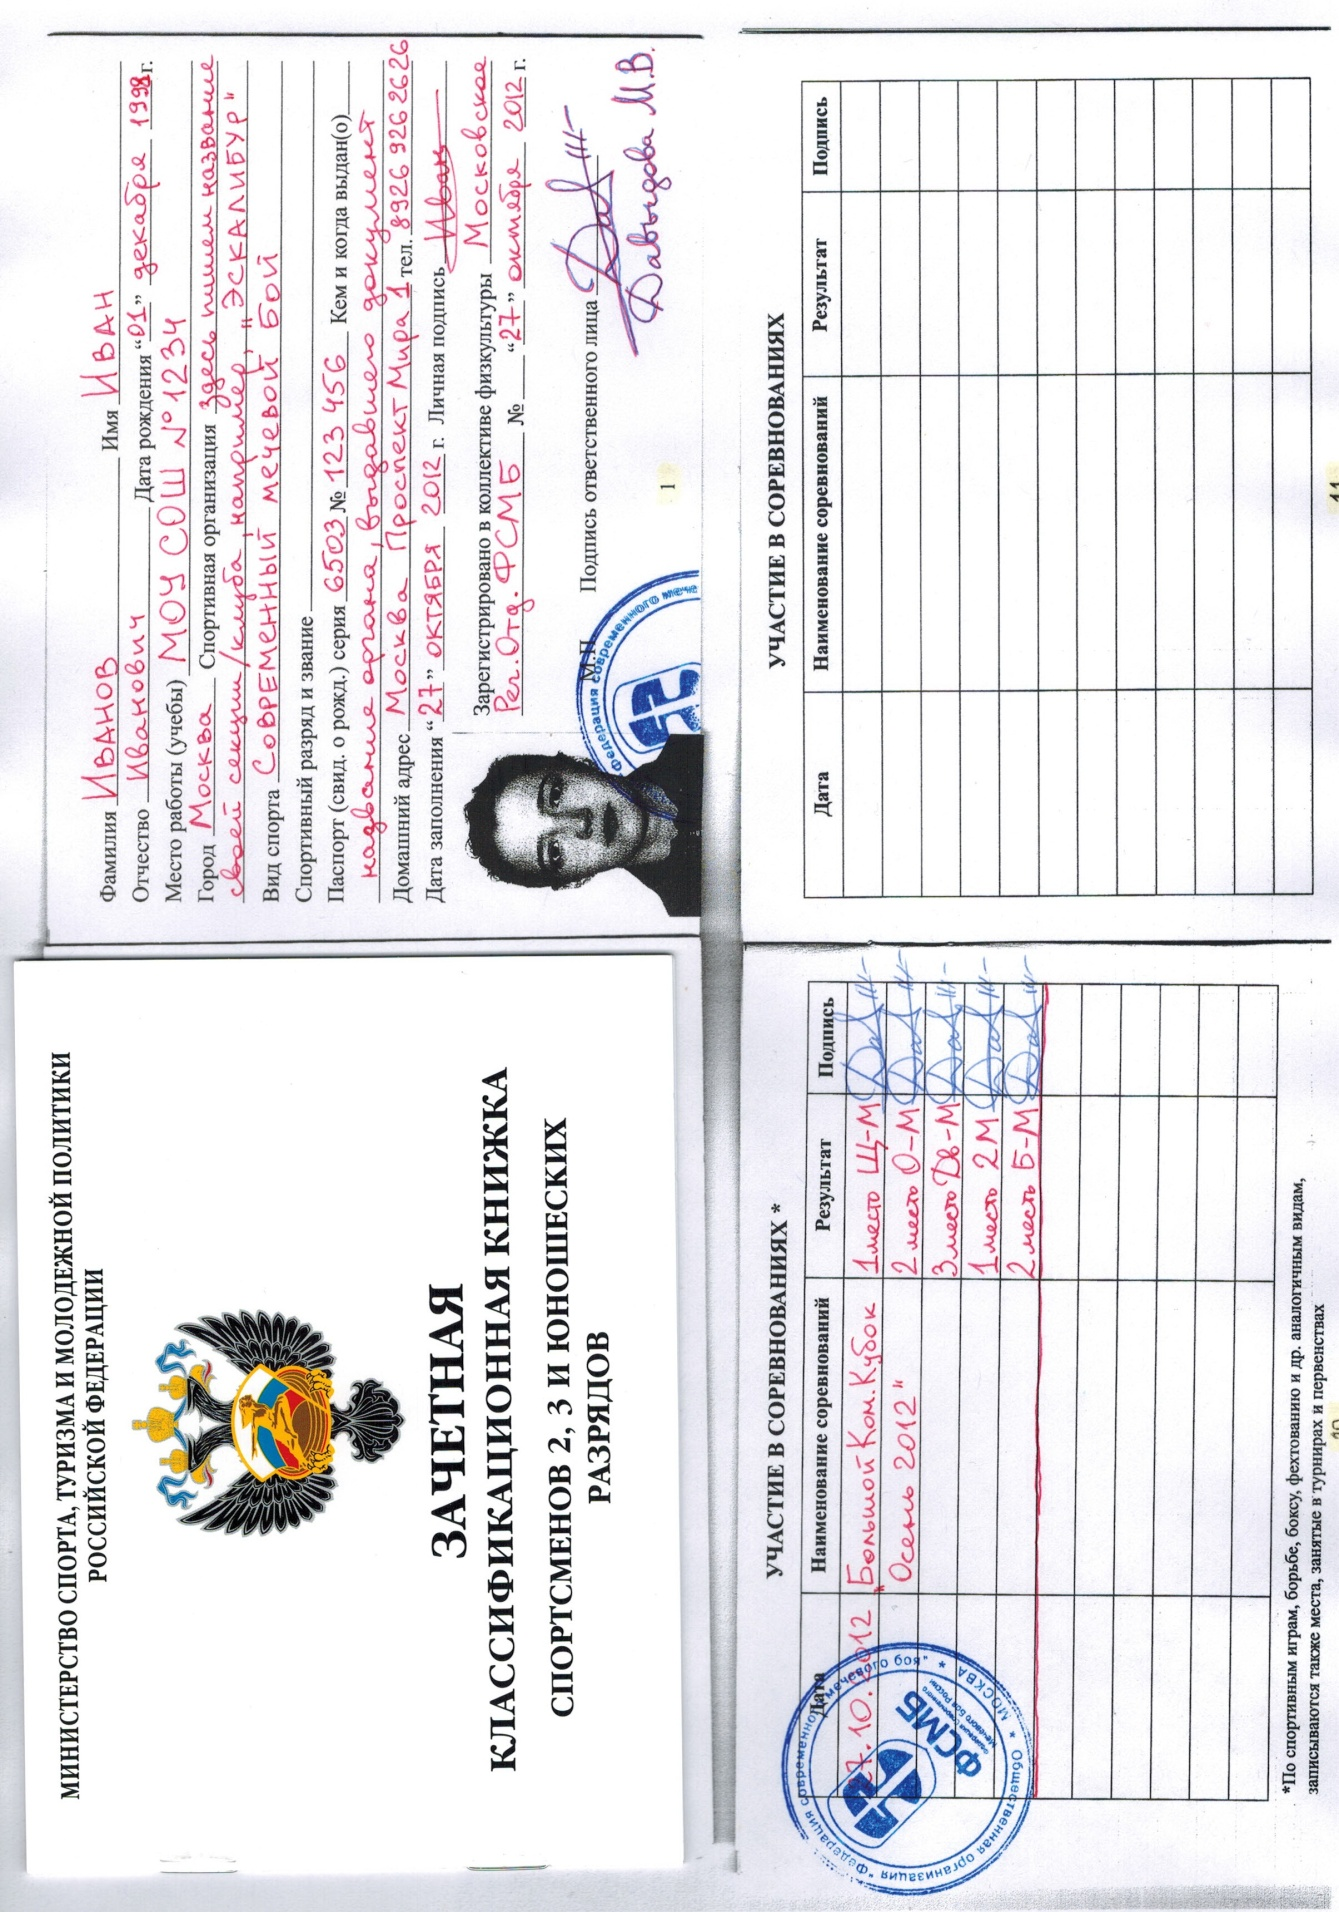 МИНИСТЕРСТВО СПОРТА, ТУРИЗМА И МОЛОДЕЖНОЙ ПОЛИТИКИ
РОССИЙСКОЙ ФЕДЕРАЦИИ
ЗАЧЕТНАЯ
КЛАССИФИКАЦИОННАЯ КНИЖКА
СПОРТСМЕНОВ 2, 3 И ЮНОШЕСКИХ
РАЗРЯДОВ
Фамилия ИВАНОВ Имя ИВАН
Отчество Иванович Дата рождения “01” декабря 1998г.
Место работы (учебы) МОУ СОШ №1234
Город Москва Спортивная организация Здесь пишем название
своей секции/клуба, например, "ЭСКАЛИБУР"
Вид спорта СОВРЕМЕННЫЙ МЕЧЕВОЙ БОЙ
Спортивный разряд и звание
Паспорт (свид. о рожд.) серия 6503 № 123 456 Кем и когда выдан(о)
название органа, выдавшего документ
Домашний адрес Москва Проспект Мира 1 тел. 8926 926 26 26
Дата заполнения “27” ОКТЯБРЯ 2012 г. Личная подпись Иван
Зарегистрировано в коллективе физкультуры Московское
Рег. Отд. ФСМБ № “27” октября 2012 г.
М.П. Подпись ответственного лица
Давыдова М.В.
Федерация современного мече
1
УЧАСТИЕ В СОРЕВНОВАНИЯХ *
Дата Наименование соревнований Результат Подпись
27.10.2012 "Большой Ком. Кубок 1 место Щ-М
Осень 2012" 2 место О-М
3 место Дв-М
1 место 2М
2 место Б-М
Общественная организация "Федерация современного мечевого боя" * МОСКВА *
ФСМБ
Федерация Современного
Мечевого Боя России
*По спортивным играм, борьбе, боксу, фехтованию и др. аналогичным видам,
записываются также места, занятые в турнирах и первенствах
УЧАСТИЕ В СОРЕВНОВАНИЯХ
Дата Наименование соревнований Результат Подпись